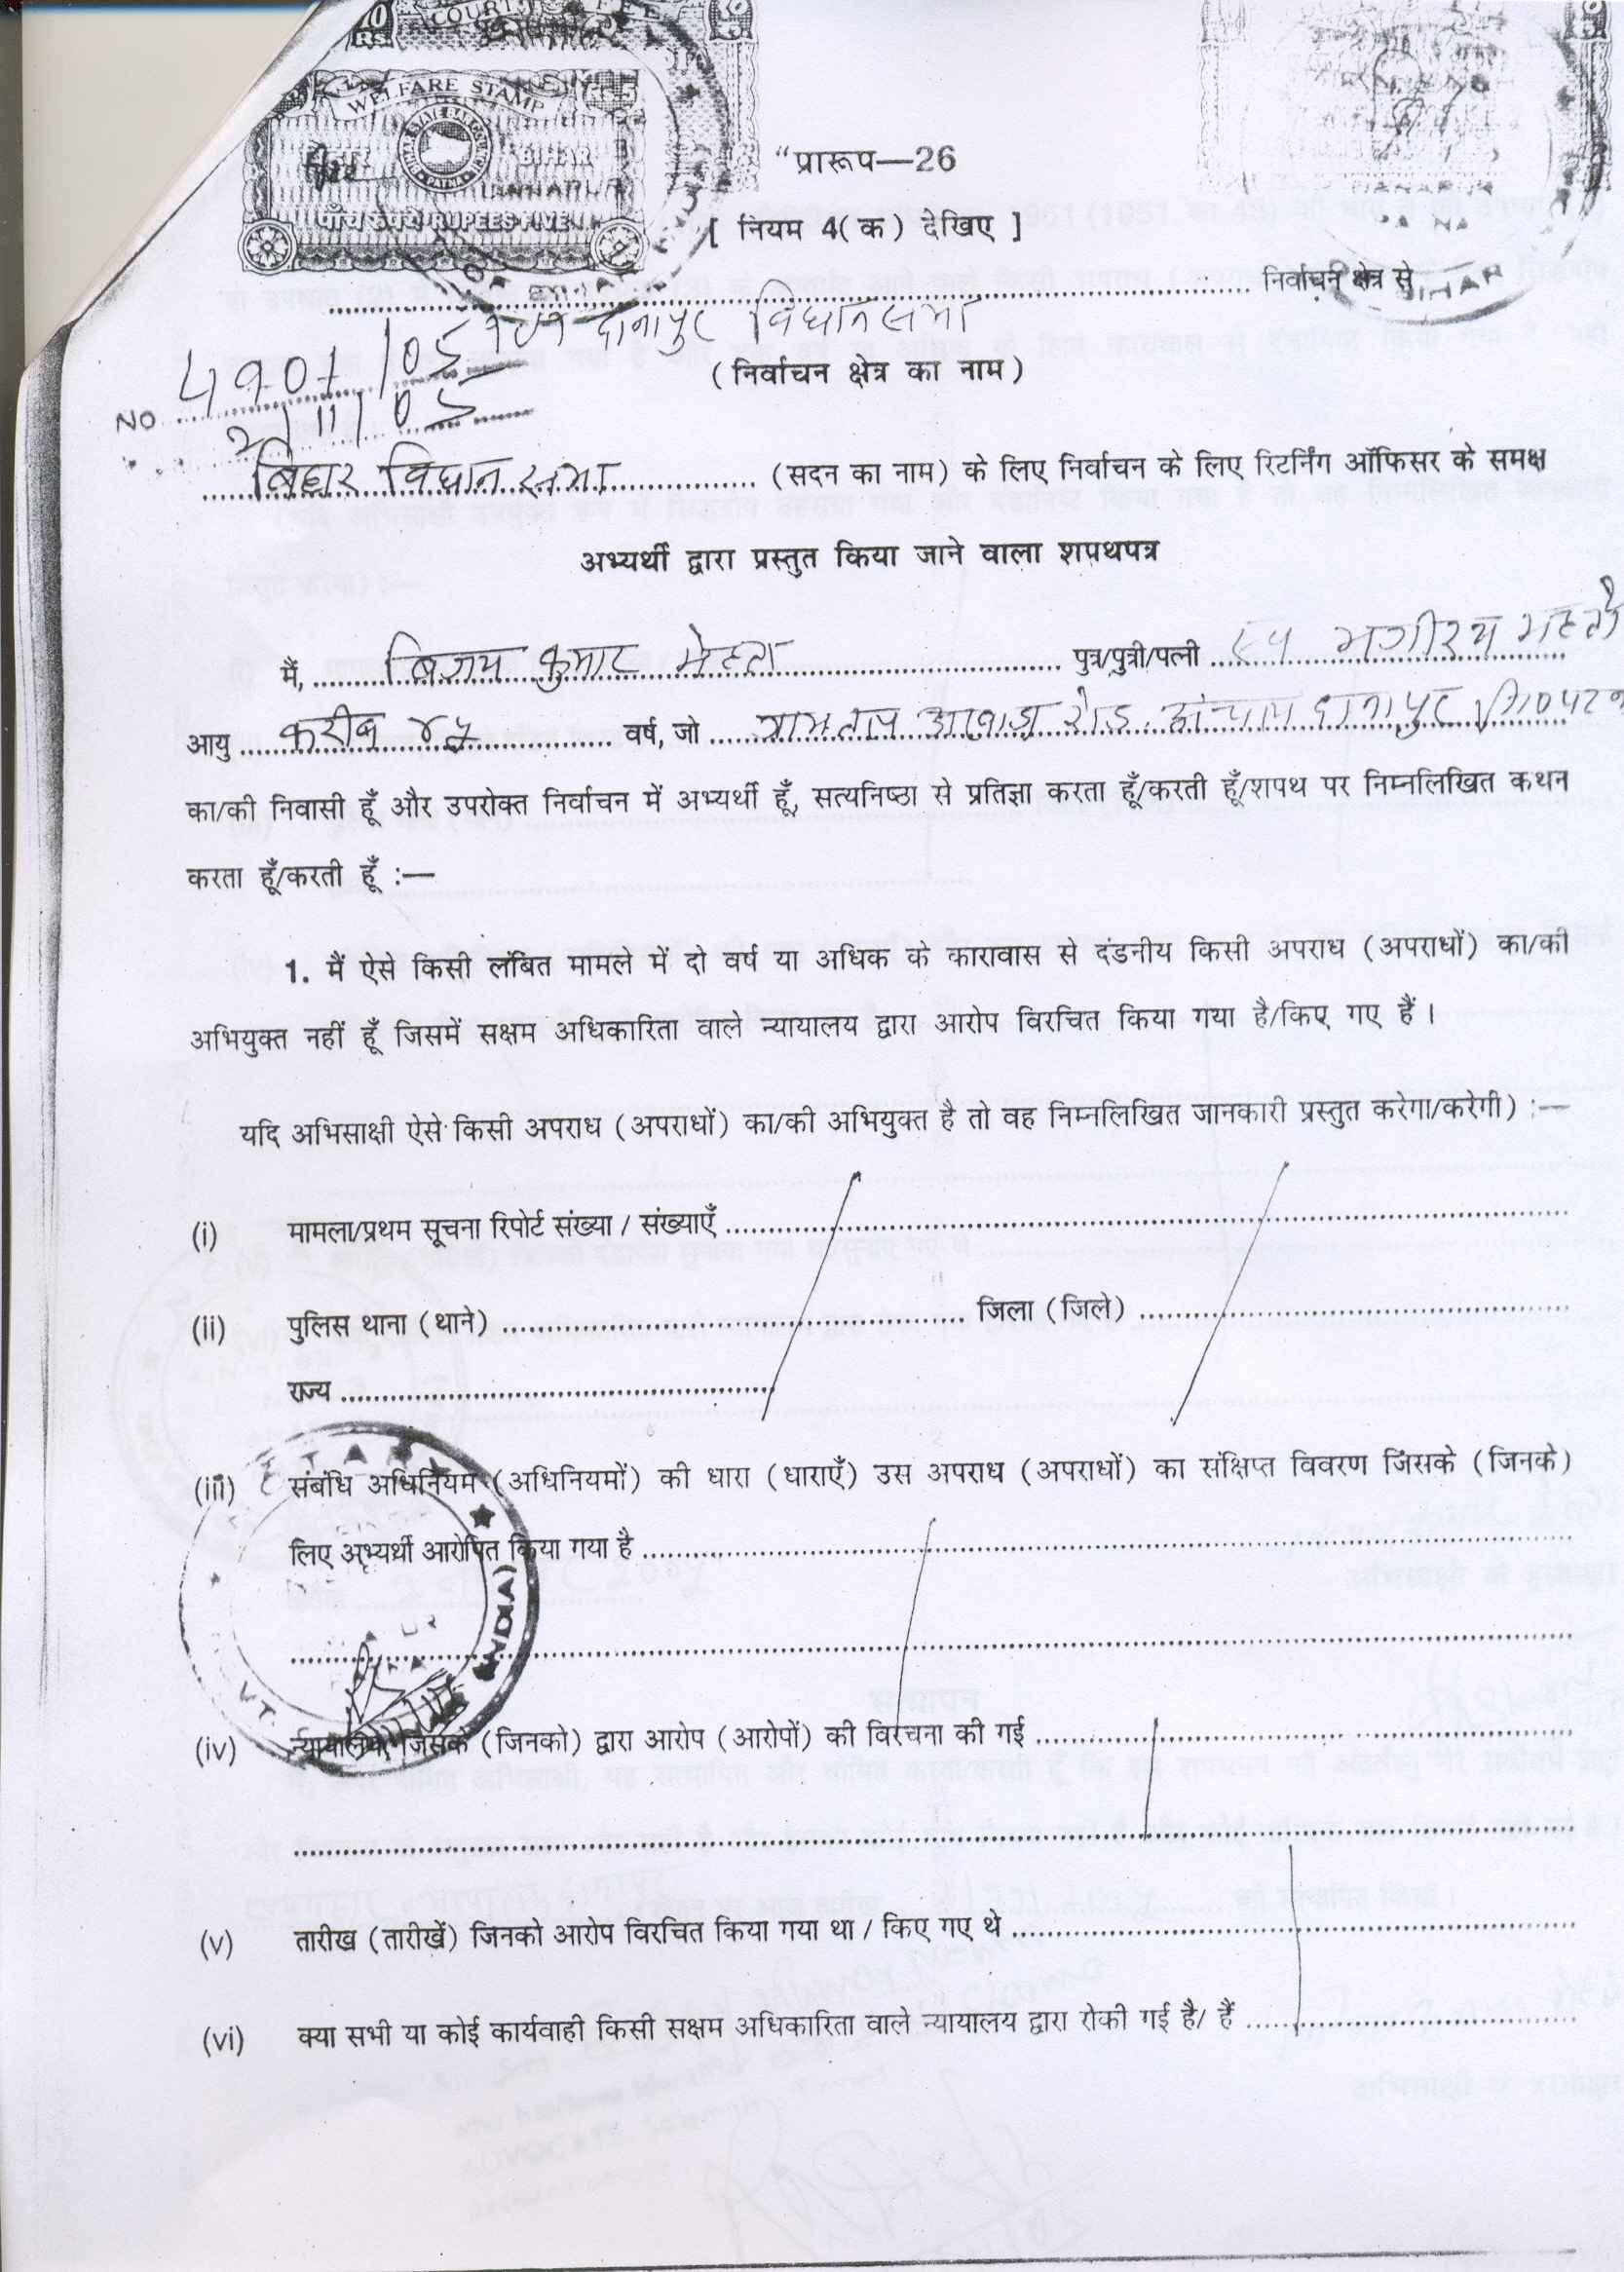 10 Rs.
COURT FEE
WELFARE STAMP
BIHAR STATE BAR COUNCIL PATNA
BIHAR
पाँच रुपये RUPEES FIVE
“प्रारूप—26
[ नियम 4( क ) देखिए ]
निर्वाचन क्षेत्र से
दानापुर विधानसभा
(निर्वाचन क्षेत्र का नाम)
NO 4901/05
2/11/05
बिहार विधान सभा (सदन का नाम) के लिए निर्वाचन के लिए रिटर्निंग ऑफिसर के समक्ष
अभ्यर्थी द्वारा प्रस्तुत किया जाने वाला शपथपत्र
मैं, बिजय कुमार मेहता पुत्र/पुत्री/पत्नी स्व भगीरथ महतो
आयु करीब ४५ वर्ष, जो रोड दानापुर
का/की निवासी हूँ और उपरोक्त निर्वाचन में अभ्यर्थी हूँ, सत्यनिष्ठा से प्रतिज्ञा करता हूँ/करती हूँ/शपथ पर निम्नलिखित कथन
करता हूँ/करती हूँ :—
1. मैं ऐसे किसी लंबित मामले में दो वर्ष या अधिक के कारावास से दंडनीय किसी अपराध (अपराधों) का/की
अभियुक्त नहीं हूँ जिसमें सक्षम अधिकारिता वाले न्यायालय द्वारा आरोप विरचित किया गया है/किए गए हैं ।
यदि अभिसाक्षी ऐसे किसी अपराध (अपराधों) का/की अभियुक्त है तो वह निम्नलिखित जानकारी प्रस्तुत करेगा/करेगी) :—
(i) मामला/प्रथम सूचना रिपोर्ट संख्या / संख्याएँ
(ii) पुलिस थाना (थाने) जिला (जिले)
राज्य
(iii) संबंधि अधिनियम (अधिनियमों) की धारा (धाराएँ) उस अपराध (अपराधों) का संक्षिप्त विवरण जिसके (जिनके)
लिए अभ्यर्थी आरोपित किया गया है
(iv) न्यायालय जिसके (जिनको) द्वारा आरोप (आरोपों) की विरचना की गई
(v) तारीख (तारीखें) जिनको आरोप विरचित किया गया था / किए गए थे
(vi) क्या सभी या कोई कार्यवाही किसी सक्षम अधिकारिता वाले न्यायालय द्वारा रोकी गई है/ हैं